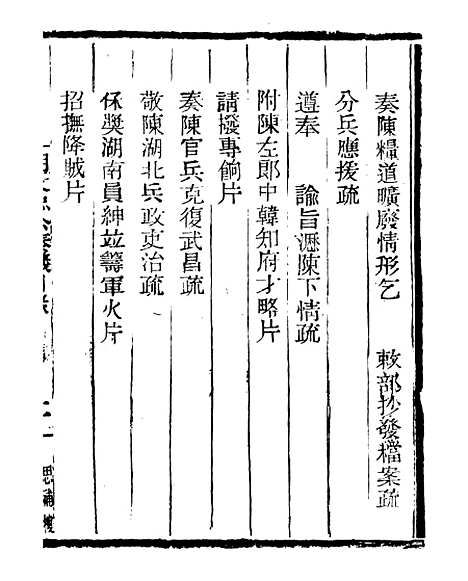 奏陳糧道曠廢情形乞　敕部抄發檔案疏
分兵應援疏
遵奉　諭旨瀝陳下情疏
附陳左郎中韓知府才略片
請撥專餉片
奏陳官兵克復武昌疏
敬陳湖北兵政吏治疏
保奬湖南員紳竝籌軍火片
招撫降賊片
思補樓